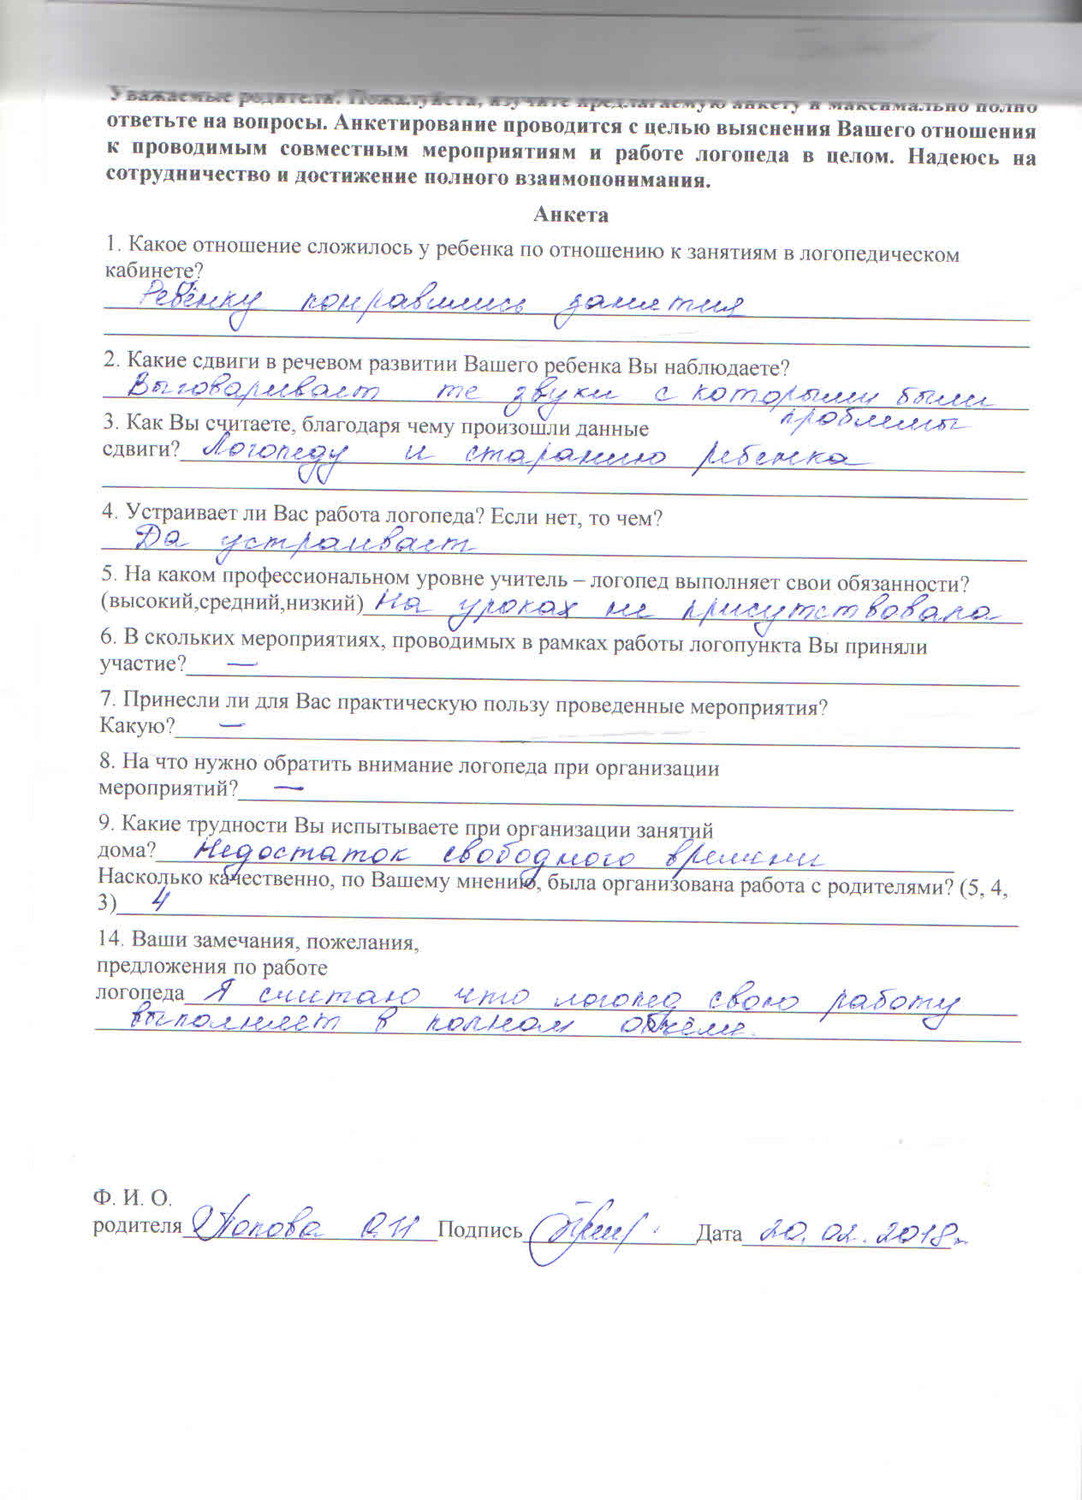 Уважаемые родители! Пожалуйста, изучите предлагаемую анкету и максимально полно
ответьте на вопросы. Анкетирование проводится с целью выяснения Вашего отношения
к проводимым совместным мероприятиям и работе логопеда в целом. Надеюсь на
сотрудничество и достижение полного взаимопонимания.
Анкета
1. Какое отношение сложилось у ребенка по отношению к занятиям в логопедическом
кабинете?
Ребёнку понравились занятия
2. Какие сдвиги в речевом развитии Вашего ребенка Вы наблюдаете?
Выговаривает те звуки с которыми были
проблемы
3. Как Вы считаете, благодаря чему произошли данные
сдвиги? Логопеду и старанию ребенка
4. Устраивает ли Вас работа логопеда? Если нет, то чем?
Да устраивает
5. На каком профессиональном уровне учитель – логопед выполняет свои обязанности?
(высокий,средний,низкий) На уроках не присутствовала
6. В скольких мероприятиях, проводимых в рамках работы логопункта Вы приняли
участие? —
7. Принесли ли для Вас практическую пользу проведенные мероприятия?
Какую? —
8. На что нужно обратить внимание логопеда при организации
мероприятий? —
9. Какие трудности Вы испытываете при организации занятий
дома? Недостаток свободного времени
Насколько качественно, по Вашему мнению, была организована работа с родителями? (5, 4,
3) 4
14. Ваши замечания, пожелания,
предложения по работе
логопеда Я считаю что логопед свою работу
выполняет в полном объёме.
Ф. И. О.
родителя Попова О.Н Подпись Дата 20.02.2018г.